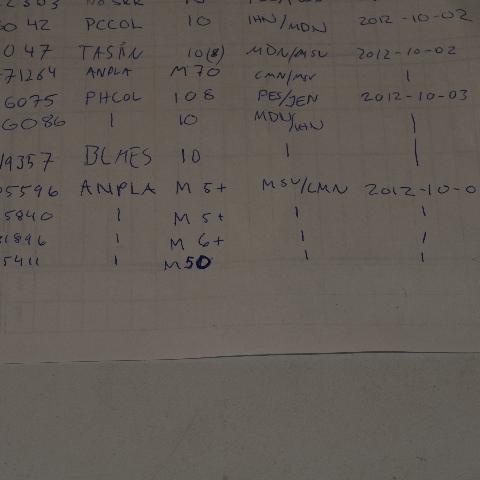 6042 PCCOL 10 IHN/MDN 2012-10-02
6047 TASÁN 10(8) MDN/MSV 2012-10-02
71264 ANPLA M70 CMN/MSV |
6075 PHCOL 108 PES/JEN 2012-10-03
6086 | 10 MDN/IHN |
19357 BLMES 10 | |
05596 ANPLA M5+ MSV/CMN 2012-10-0
5840 | M5+ | |
1896 | M6+ | |
5411 | M50 | |